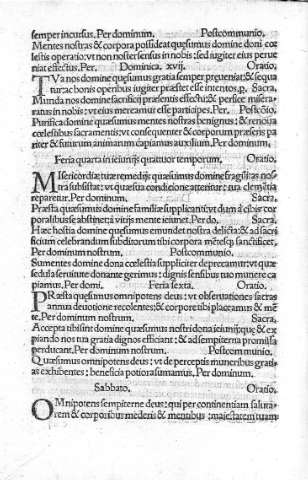 semper incursus. Per dominum. Postcommunio.
Mentes nostras & corpora possideat quesumus domine doni coe
lestis operatio: vt non noster sensus in nobis: sed iugiter eius perue
niat effectus. Per. Dominica .xvij. Oratio.
TVa nos domine quesumus gratia semper preueniat: & sequa
tur: ac bonis operibus iugiter præstet esse intentos. p. Sacra.
Munda nos domine sacrificij præsentis effectu: & perfice misera-
ratus in nobis: vt eius mereamur esse participes. Per. Postcōio.
Purifica domine quesumus mentes nostras benignus: & renoua
coelestibus sacramentis: vt consequenter & corporum præsens pa
riter & futurum animarum capiamus auxilium. Per dominum.
Feria quarta in ieiunijs quattuor temporum. Oratio.
MIsericordiæ tuæ remedijs quæsumus domine fragilitas nos
tra subsistat: vt quæ sua conditione atteritur: tua clemētia
reparetur. Per dominum. Sacra.
Præsta quæsumus domine familiæ supplicanti: vt dum a cibis cor
poralibus se abstinet: a vitijs mente ieiunet. Per do. Sacra.
Hæc hostia domine quesumus emundet nostra delicta: & ad sacri
ficium celebrandum subditorum tibi corpora mētesq3 sanctificet.
Per dominum nostrum. Postcommunio.
Sumentes domine dona coelestia suppliciter deprecamur: vt quæ
sedula seruitute donante gerimus: dignis sensibus tuo munere ca
piamus. Per domi. Feria sexta. Oratio.
PRæsta quesumus omnipotens deus: vt obseruationes sacras
annua deuotione recolentes: & corpore tibi placeamus & mē
te. Per dominum nostrum. Sacra.
Accepta tibi sint domine quæsumus nostri dona ieiunij: quæ & ex
piando nos tua gratia dignos efficiant: & ad sempiterna promissa
perducant. Per dominum nostrum. Postcommunio.
Quæsumus omnipotens deus: vt de perceptis muneribus grati
as exhibentes: beneficia potiora sumamus. Per dominum.
Sabbato. Oratio.
OMnipotens sempiterne deus: qui per continentiam saluta-
rem & corporibus mederis & mentibus: maiestatem tuam